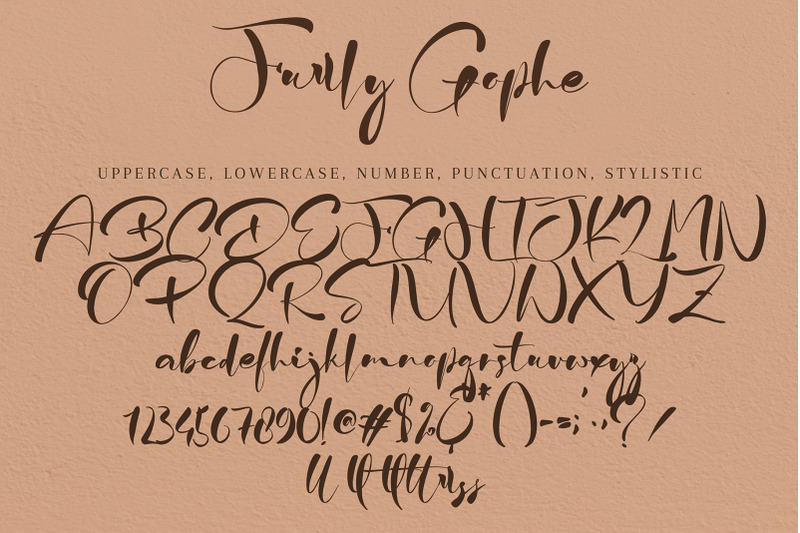 Furrly Gophe
UPPERCASE, LOWERCASE, NUMBER, PUNCTUATION, STYLISTIC
ABCDEFGHIJKLMN
OPQRSTUVWXYZ
abcdefhijklmnopqrstuvwxyz
1234567890!@#$%&*()-=;:.,'?/